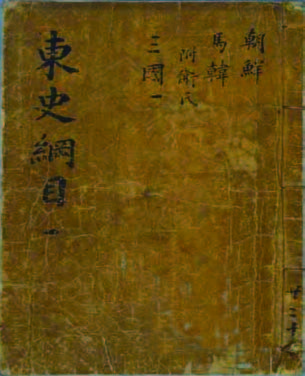 朝鮮
馬韓
附衛氏
三國一
東史綱目一